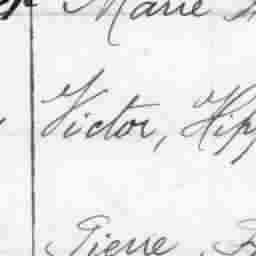 Marie
Victor, Hipp
Pierre,